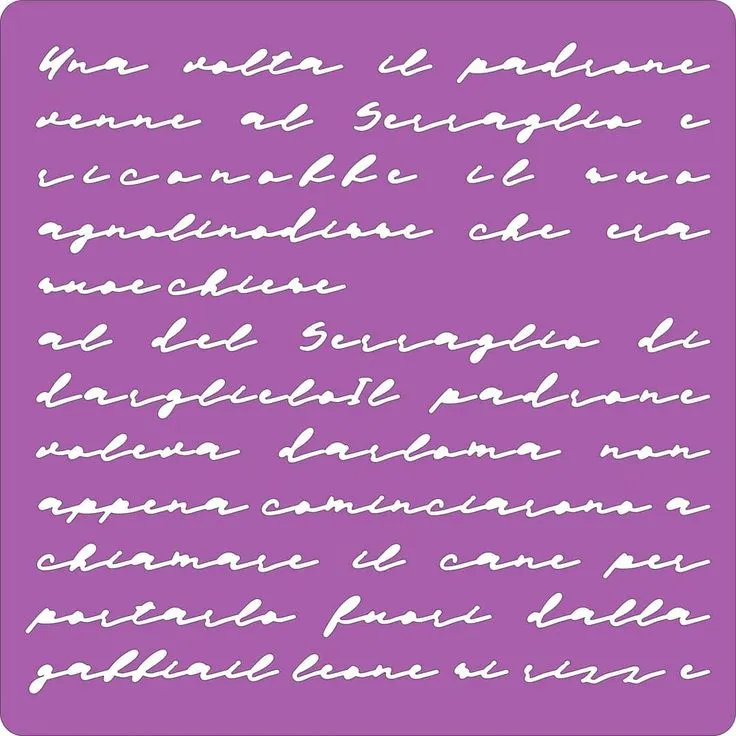 Una volta il padrone
venne al Serraglio e
riconobbe il suo
agnolinodisse che era
suoe chiese
al del Serraglio di
darglieloIl padrone
voleva darloma non
appena cominciarono a
chiamare il cane per
portarlo fuori dalla
gabbiail leone si rizz e